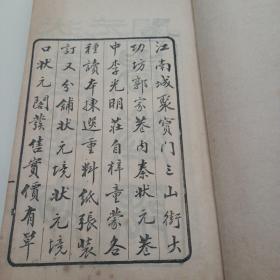 江南城聚寳门三山街大
功坊郭家巷内秦状元巷
中李光明莊自梓童蒙各
種讀本揀选重料纸張装
訂又分铺状元境状元境
口状元閣發售實價有单